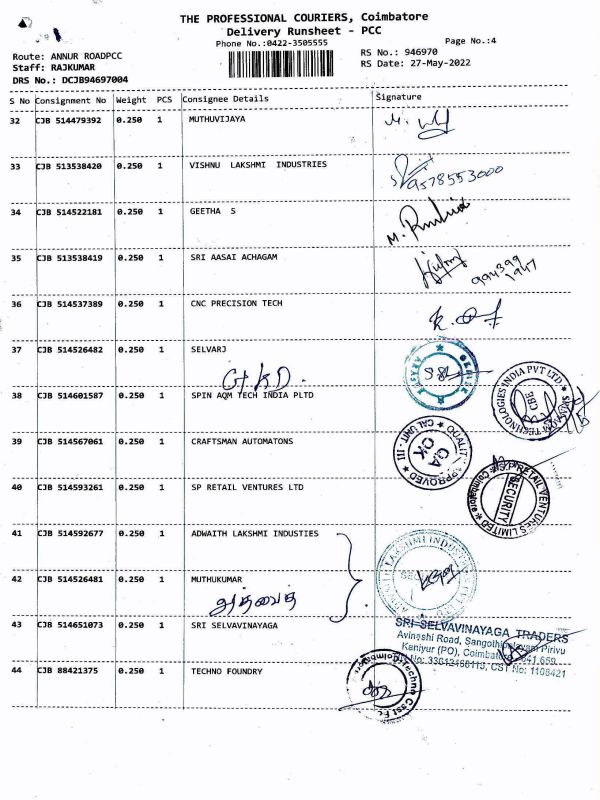 THE PROFESSIONAL COURIERS, Coimbatore
Delivery Runsheet - PCC
Phone No.:0422-3505555
Page No.:4
Route: ANNUR ROADPCC
Staff: RAJKUMAR
DRS No.: DCJB94697004
RS No.: 946970
RS Date: 27-May-2022
S No Consignment No Weight PCS Consignee Details Signature
32 CJB 514479392 0.250 1 MUTHUVIJAYA
33 CJB 513538420 0.250 1 VISHNU LAKSHMI INDUSTRIES
9578553000
34 CJB 514522181 0.250 1 GEETHA S
35 CJB 513538419 0.250 1 SRI AASAI ACHAGAM
994399
1947
36 CJB 514537389 0.250 1 CNC PRECISION TECH
37 CJB 514526482 0.250 1 SELVARJ
G.K.D.
38 CJB 514601587 0.250 1 SPIN AQM TECH INDIA PLTD
TECHNOLOGIES INDIA PVT LTD
CBE
39 CJB 514567061 0.250 1 CRAFTSMAN AUTOMATONS
CAL UNIT - III
QA
OK
APPROVED
40 CJB 514593261 0.250 1 SP RETAIL VENTURES LTD
S.P. RETAIL VENTURES LIMITED
SECURITY
Coimbatore
41 CJB 514592677 0.250 1 ADWAITH LAKSHMI INDUSTIES
LAKSHMI INDUSTRIES
42 CJB 514526481 0.250 1 MUTHUKUMAR
அத்வைத்
43 CJB 514651073 0.250 1 SRI SELVAVINAYAGA
SRI SELVAVINAYAGA TRADERS
Avinashi Road, Sangothipalayam Pirivu
Kaniyur (PO), Coimbatore - 641 659
CST No: 1108421
44 CJB 88421375 0.250 1 TECHNO FOUNDRY
Techno Cast